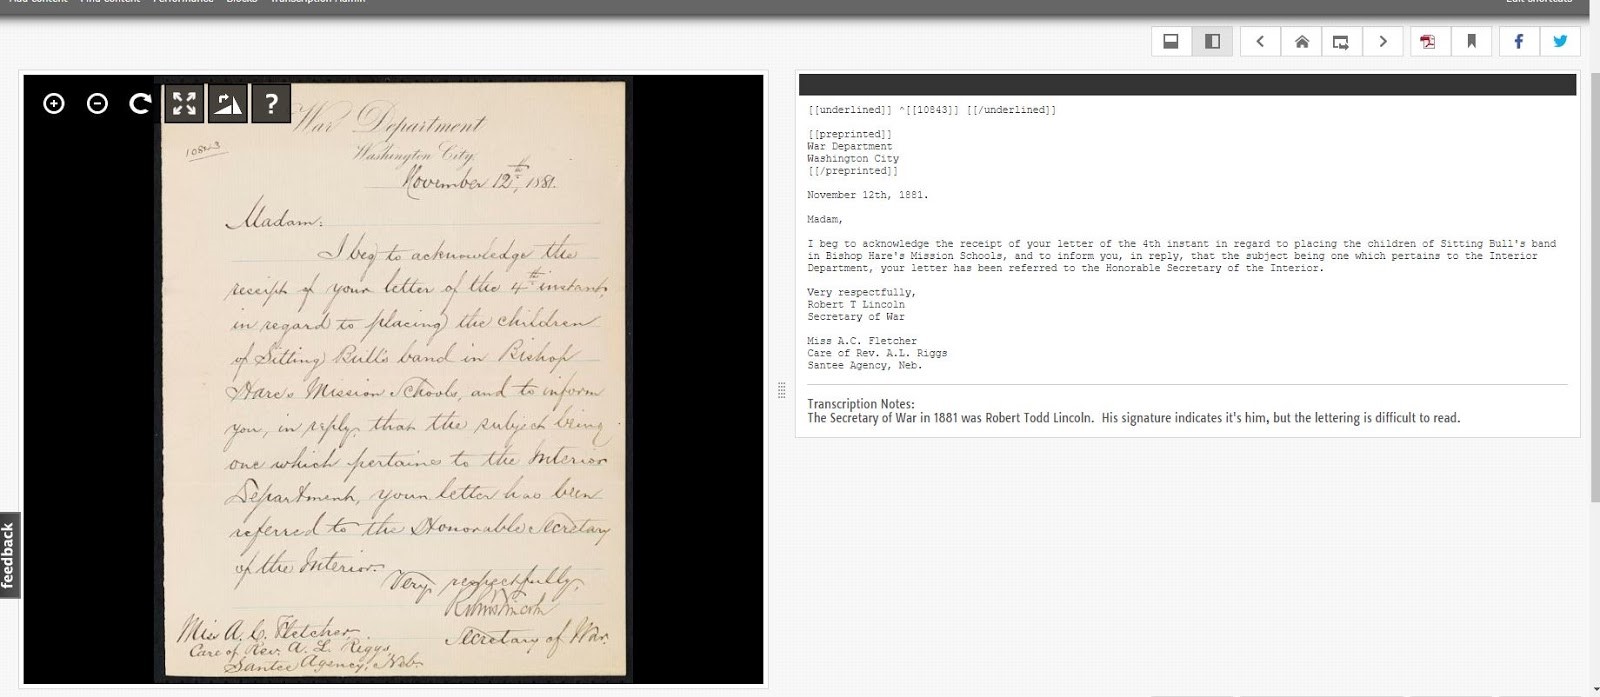 Add Content Find Content Performance Blocks Transcription Admin
Edit Shortcuts
?
War Department
Washington City,
10843
November 12th, 1881.
Madam:
I beg to acknowledge the
receipt of your letter of the 4th instant,
in regard to placing the children
of Sitting Bull's band in Bishop
Hare's Mission Schools, and to inform
you, in reply, that the subject being
one which pertains to the Interior
Department, your letter has been
referred to the Honorable Secretary
of the Interior.
Very respectfully,
Robert T Lincoln
Secretary of War.
Miss A. C. Fletcher.
Care of Rev. A. L. Riggs,
Santee Agency, Neb.
feedback
[[underlined]] ^[[10843]] [[/underlined]]
[[preprinted]]
War Department
Washington City
[[/preprinted]]
November 12th, 1881.
Madam,
I beg to acknowledge the receipt of your letter of the 4th instant in regard to placing the children of Sitting Bull's band
in Bishop Hare's Mission Schools, and to inform you, in reply, that the subject being one which pertains to the Interior
Department, your letter has been referred to the Honorable Secretary of the Interior.
Very respectfully,
Robert T Lincoln
Secretary of War
Miss A.C. Fletcher
Care of Rev. A.L. Riggs
Santee Agency, Neb.
Transcription Notes:
The Secretary of War in 1881 was Robert Todd Lincoln. His signature indicates it's him, but the lettering is difficult to read.